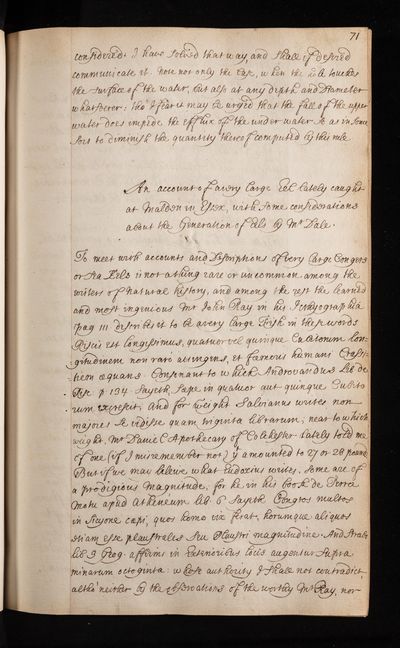 71
considered. I have solved that way, and shall if desired
communicate it. note not only the case, when the tube touches
the surface of the water, but also at any depth and Diameter
whatsoever: tho' I fear it may be urged that the fall of the upper
water does impede the efflux of the under water so as in some
sort to diminish the quantity thereof computed by this rule
An account of a very large Eel lately caught
at Maldon in Essex, with some considerations
about the Generation of Eels by Mr Dale.
To meet with accounts and Descriptions of very large Congers
or Sea Eels is not a thing rare or uncommon among the
writers of Natural history, and among the rest the learned
and most ingenious Mr John Ray in his Icthyographia
pag 111 describes it to be a very large Fish in these words
Piscis est longissimus, quatuor vel quinque Cubitorum lon
gitudinem non raro attingens, et femoris humani Crassi
tiem æquans. Consonant to which Androvandus lib de
Pisc. p 134 sayeth, sæpe in quatuor aut quinque Cubito
rum excrescit, And for weight Salvianus writes non
majores se vidisse quam triginta librarum; near to which
weight, Mr Daniel Apothecary of Colchester lately told me
of one (if I misremember not) yt amounted to 27 or 28 pound
But if we may beleive what Eudoxius writes, some are of
a prodigious magnitude, for he in his book de Terræ
Motu apud Athenæum lib 6 sayeth Congros multos
in Sicyone capi, quos homo vix ferat, horumque aliquos
etiam esse plaustrales seu Plaustri magnitudine. And Strabo
lib 3 Geog. affirms in exterioribus locis augentur supra
minarum octoginta: whose authority I shall not contradict
altho' neither by the observations of the worthy Mr Ray, nor